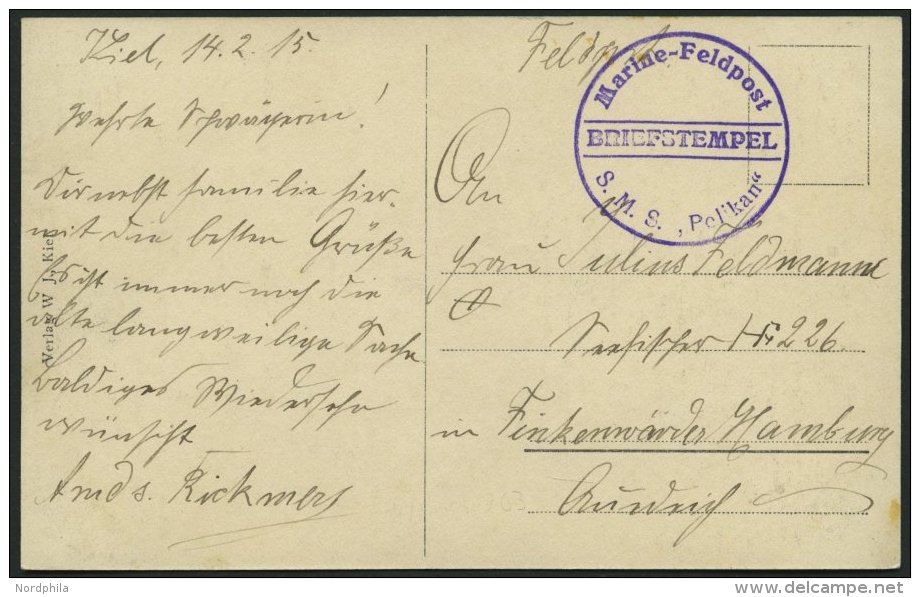 Kiel, 14.2.15.
Werthe Schwägerin!
Dir nebst Familie hier-
mit die besten Grüße
Es ist immer noch die
alte langweilige Sache
Baldiges Wiedersehn
wünscht
Rickmers
Verlag W. J., Kiel
Feldpost
Marine-Feldpost
BRIEFSTEMPEL
S. M. S. „Pelikan“
An
Frau Julius Feldmann
Seefischer Nr. 226.
in Finkenwärder Hamburg
Nordphila
www.delcampe.net